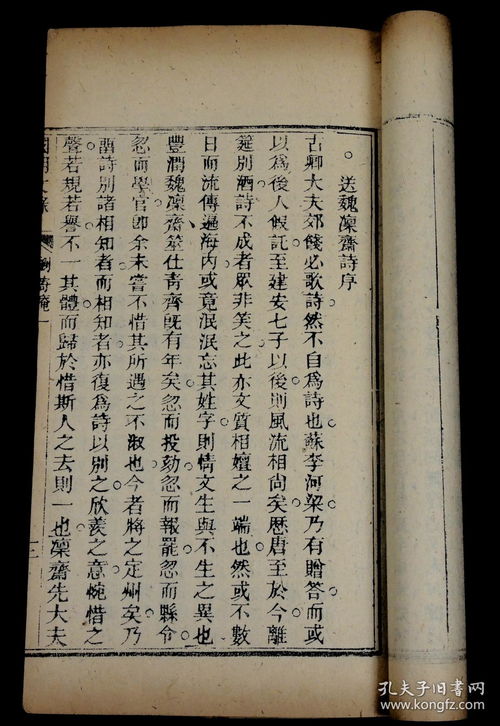 送魏凜齋詩序
古卿大夫郊餞必歌詩然不自爲詩也蘇李河梁乃有贈答而或
以爲後人假託至建安七子以後則風流相尚矣歷唐至於今離
筵別酒詩不成者眾非笑之此亦文質相嬗之一端也然或不數
日而流傳遍海内或竟泯泯忘其姓字則情文生與不生之異也
豐潤魏凜齋筮仕靑齊旣有年矣忽而投劾忽而報罷忽而縣令
忽而學官卽余未嘗不惜其所遇之不淑也今者將之定州矣乃
畱詩別諸相知者而相知者亦復爲詩以別之欣羨之意惋惜之
聲若規若譽不一其體而歸於惜斯人之去則一也凜齋先大夫
國朝文錄
劉寄庵一
三
孔夫子旧书网
www.kongfz.com